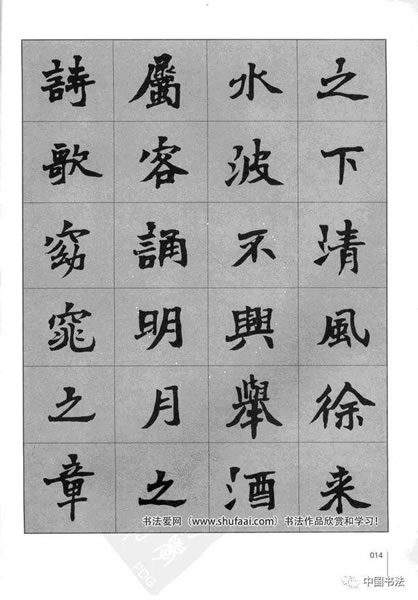 之下清風徐来
水波不興舉酒
屬客誦明月之
詩歌窈窕之章
书法爱网（www.shufaai.com）书法作品欣赏和学习！
014
中国书法
PDG